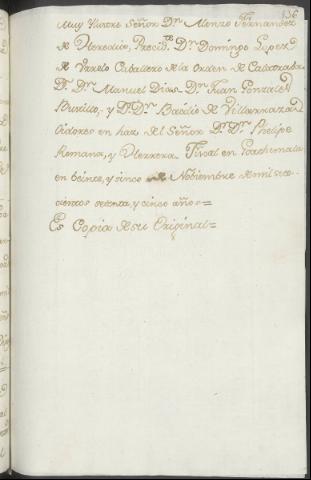 136
Muy Ylustre Señor Dn. Alonzo Fernandez
de Heredia, Presidte. Dn. Domingo Lopez
de Urrelo Caballero de la Orden de Calatraba
Dn. Dn. Manuel Dias. Dn. Juan Gonzalez
Bustillo, y Dn. Dn. Basilio de Villarrazad
Oidores en haz del Señor Dn. Dn. Phelipe
Romana, y Herrera. Fiscal en Goathemala
en beinte, y cinco de Nobiembre de mil sete-
cientos setenta, y cinco años=
Es Copia de su Original=